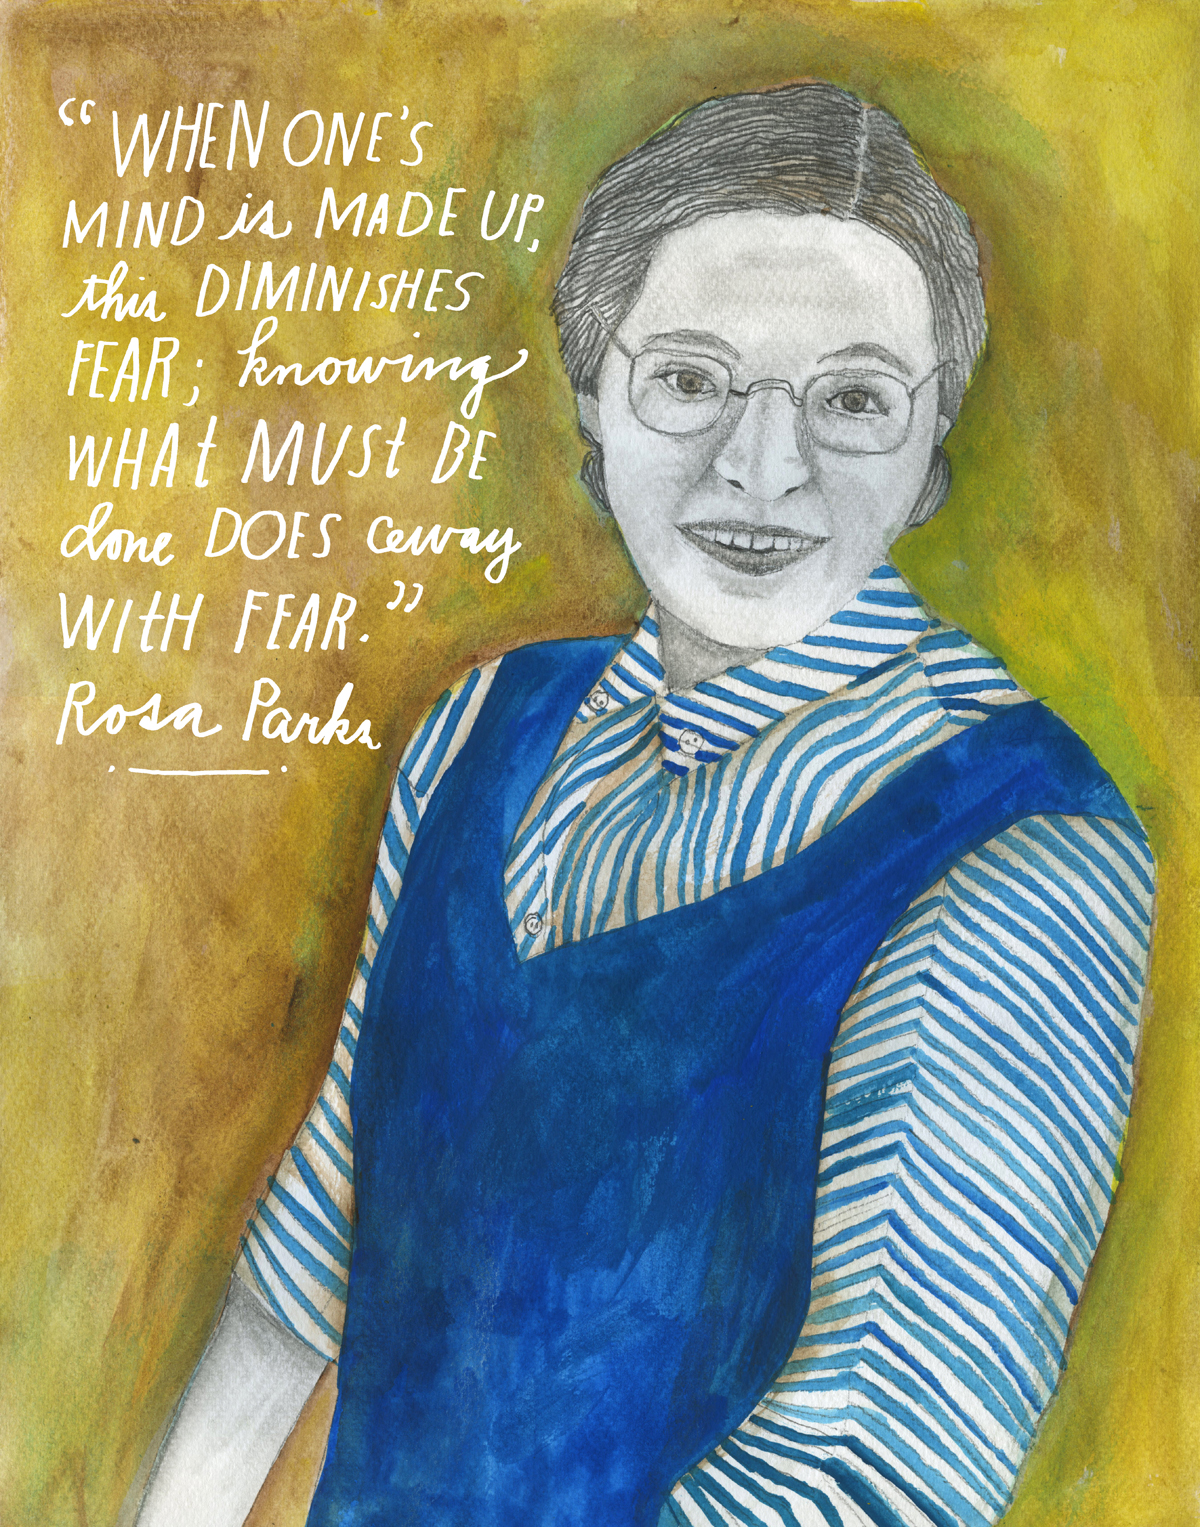 “WHEN ONE'S
MIND is MADE UP,
this DIMINISHES
FEAR; knowing
WHAt MUSt BE
done DOES away
WItH FEAR.”
Rosa Parks